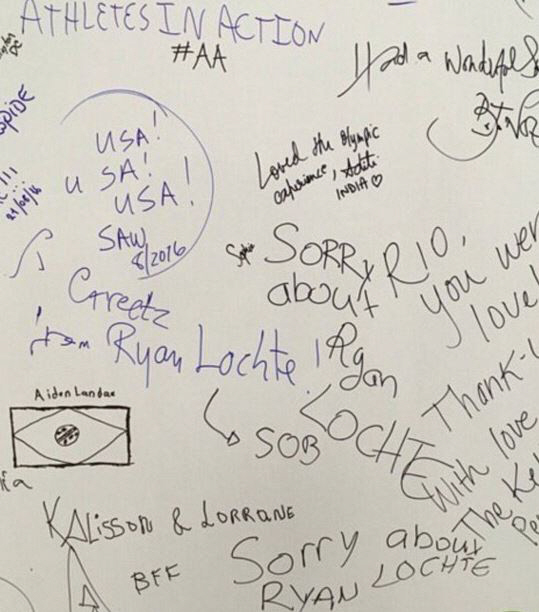 ATHLETES IN ACTION
#AA
Had a Wonderful
SPIDE
USA!
USA!
USA!
SAW
8/2016
Loved the Olympic
experience, Aditi
INDIA♡
Sophie
SORRY
about
Ryan
LOCHTE
RIO,
you wer
lovel
Thank-
With love
The Kel
Greetz
from Ryan Lochte!
SOB
Aiden Landau
KALISSON & LORRANE
BFF
Sorry about
RYAN LOCHTE